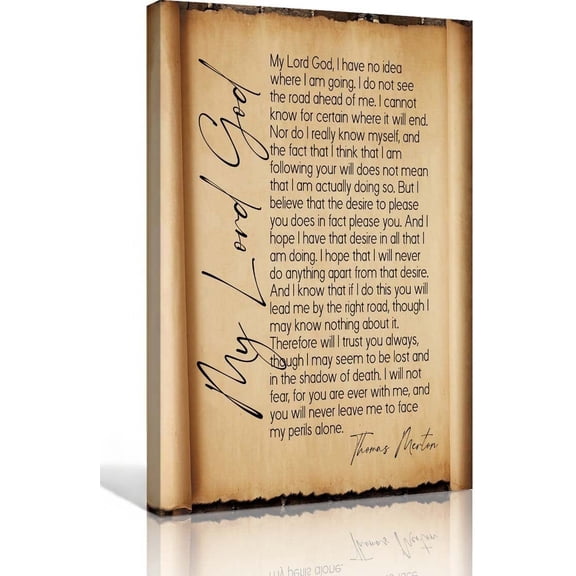 My Lord God
My Lord God, I have no idea
where I am going. I do not see
the road ahead of me. I cannot
know for certain where it will end.
Nor do I really know myself, and
the fact that I think that I am
following your will does not mean
that I am actually doing so. But I
believe that the desire to please
you does in fact please you. And I
hope I have that desire in all that I
am doing. I hope that I will never
do anything apart from that desire.
And I know that if I do this you will
lead me by the right road, though I
may know nothing about it.
Therefore will I trust you always,
though I may seem to be lost and
in the shadow of death. I will not
fear, for you are ever with me, and
you will never leave me to face
my perils alone.
Thomas Merton